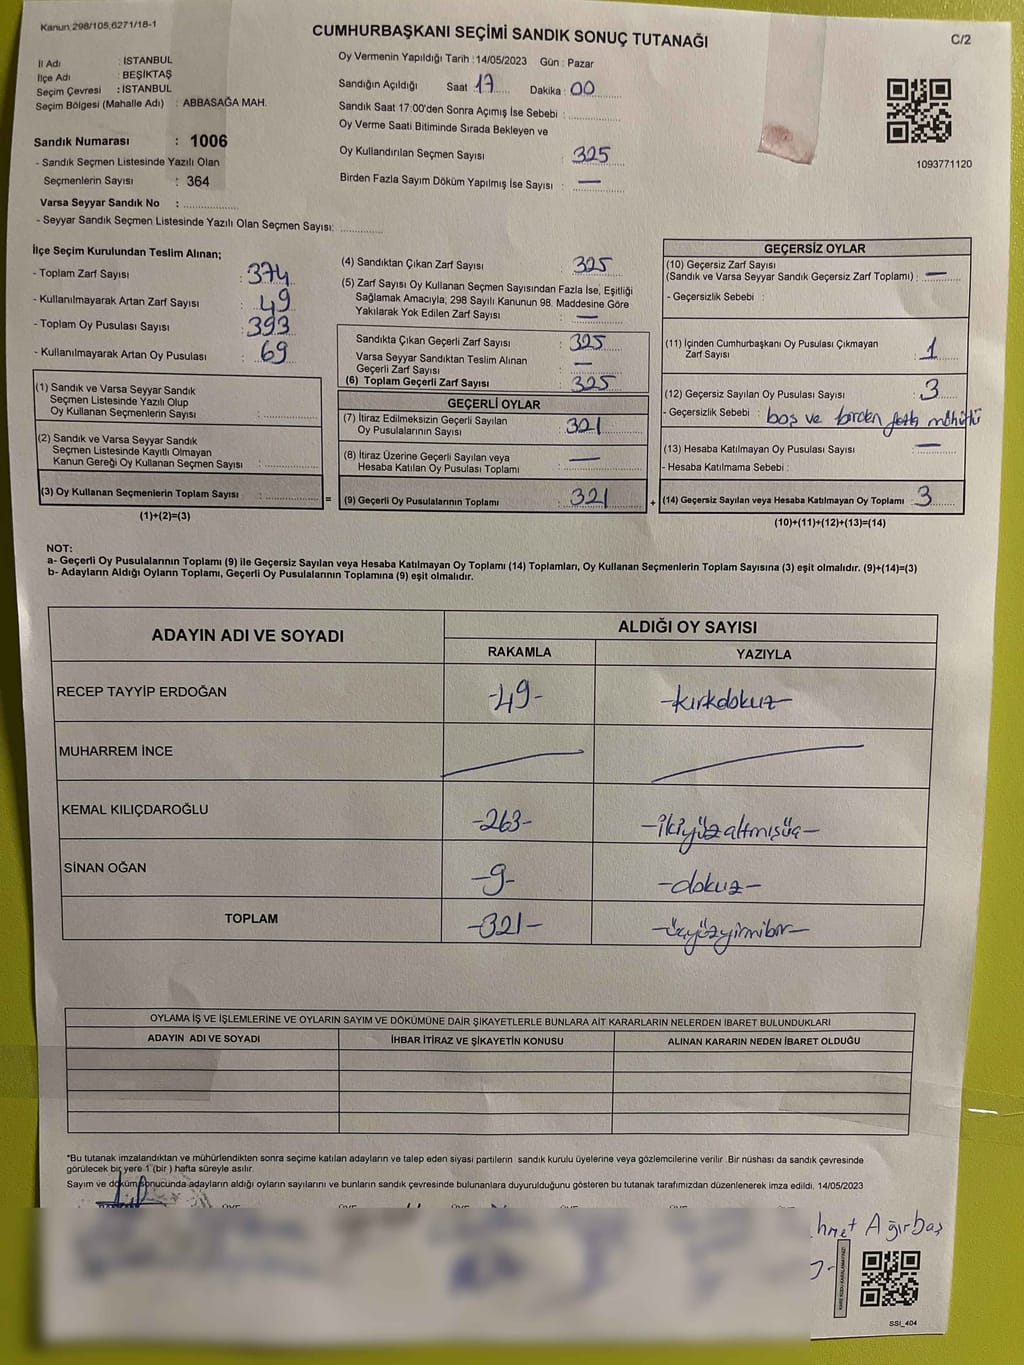 Kanun 298/105,6271/18-1
CUMHURBAŞKANI SEÇİMİ SANDIK SONUÇ TUTANAĞI
C/2
İl Adı : İSTANBUL
İlçe Adı : BEŞİKTAŞ
Seçim Çevresi : İSTANBUL
Seçim Bölgesi (Mahalle Adı) : ABBASAĞA MAH.
Sandık Numarası : 1006
- Sandık Seçmen Listesinde Yazılı Olan
Seçmenlerin Sayısı : 364
Varsa Seyyar Sandık No :
- Seyyar Sandık Seçmen Listesinde Yazılı Olan Seçmen Sayısı:
Oy Vermenin Yapıldığı Tarih : 14/05/2023 Gün : Pazar
Sandığın Açıldığı Saat 17 Dakika : 00
Sandık Saat 17:00'den Sonra Açımış İse Sebebi :
Oy Verme Saati Bitiminde Sırada Bekleyen ve
Oy Kullandırılan Seçmen Sayısı : 325
Birden Fazla Sayım Döküm Yapılmış İse Sayısı : —
1093771120
İlçe Seçim Kurulundan Teslim Alınan;
- Toplam Zarf Sayısı : 374
- Kullanılmayarak Artan Zarf Sayısı : 49
- Toplam Oy Pusulası Sayısı : 393
- Kullanılmayarak Artan Oy Pusulası : 69
(1) Sandık ve Varsa Seyyar Sandık
Seçmen Listesinde Yazılı Olup
Oy Kullanan Seçmenlerin Sayısı :
(2) Sandık ve Varsa Seyyar Sandık
Seçmen Listesinde Kayıtlı Olmayan
Kanun Gereği Oy Kullanan Seçmen Sayısı :
(3) Oy Kullanan Seçmenlerin Toplam Sayısı :
(1)+(2)=(3)
(4) Sandıktan Çıkan Zarf Sayısı : 325
(5) Zarf Sayısı Oy Kullanan Seçmen Sayısından Fazla İse, Eşitliği
Sağlamak Amacıyla; 298 Sayılı Kanunun 98. Maddesine Göre
Yakılarak Yok Edilen Zarf Sayısı : —
Sandıkta Çıkan Geçerli Zarf Sayısı : 325
Varsa Seyyar Sandıktan Teslim Alınan
Geçerli Zarf Sayısı : —
(6) Toplam Geçerli Zarf Sayısı : 325
GEÇERLİ OYLAR
(7) İtiraz Edilmeksizin Geçerli Sayılan
Oy Pusulalarının Sayısı : 321
(8) İtiraz Üzerine Geçerli Sayılan veya
Hesaba Katılan Oy Pusulası Toplamı : —
= (9) Geçerli Oy Pusulalarının Toplamı : 321 +
GEÇERSİZ OYLAR
(10) Geçersiz Zarf Sayısı
(Sandık ve Varsa Seyyar Sandık Geçersiz Zarf Toplamı) : —
- Geçersizlik Sebebi :
(11) İçinden Cumhurbaşkanı Oy Pusulası Çıkmayan
Zarf Sayısı : 1
(12) Geçersiz Sayılan Oy Pusulası Sayısı : 3
- Geçersizlik Sebebi : boş ve birden fazla mühürlü
(13) Hesaba Katılmayan Oy Pusulası Sayısı : —
- Hesaba Katılmama Sebebi :
(14) Geçersiz Sayılan veya Hesaba Katılmayan Oy Toplamı : 3
(10)+(11)+(12)+(13)=(14)
NOT:
a- Geçerli Oy Pusulalarının Toplamı (9) ile Geçersiz Sayılan veya Hesaba Katılmayan Oy Toplamı (14) Toplamları, Oy Kullanan Seçmenlerin Toplam Sayısına (3) eşit olmalıdır. (9)+(14)=(3)
b- Adayların Aldığı Oyların Toplamı, Geçerli Oy Pusulalarının Toplamına (9) eşit olmalıdır.
ADAYIN ADI VE SOYADI
ALDIĞI OY SAYISI
RAKAMLA YAZIYLA
RECEP TAYYİP ERDOĞAN -49- -kırkdokuz-
MUHARREM İNCE
KEMAL KILIÇDAROĞLU -263- -ikiyüzaltmışüç-
SİNAN OĞAN -9- -dokuz-
TOPLAM -321- -üçyüzyirmibir-
OYLAMA İŞ VE İŞLEMLERİNE VE OYLARIN SAYIM VE DÖKÜMÜNE DAİR ŞİKAYETLERLE BUNLARA AİT KARARLARIN NELERDEN İBARET BULUNDUKLARI
ADAYIN ADI VE SOYADI İHBAR İTİRAZ VE ŞİKAYETİN KONUSU ALINAN KARARIN NEDEN İBARET OLDUĞU
*Bu tutanak imzalandıktan ve mühürlendikten sonra seçime katılan adayların ve talep eden siyasi partilerin sandık kurulu üyelerine veya gözlemcilerine verilir .Bir nüshası da sandık çevresinde
görülecek bir yere 1 (bir ) hafta süreyle asılır.
Sayım ve döküm sonucunda adayların aldığı oyların sayılarını ve bunların sandık çevresinde bulunanlara duyurulduğunu gösteren bu tutanak tarafımızdan düzenlenerek imza edildi. 14/05/2023
hmet Ağırbaş
SSI_404